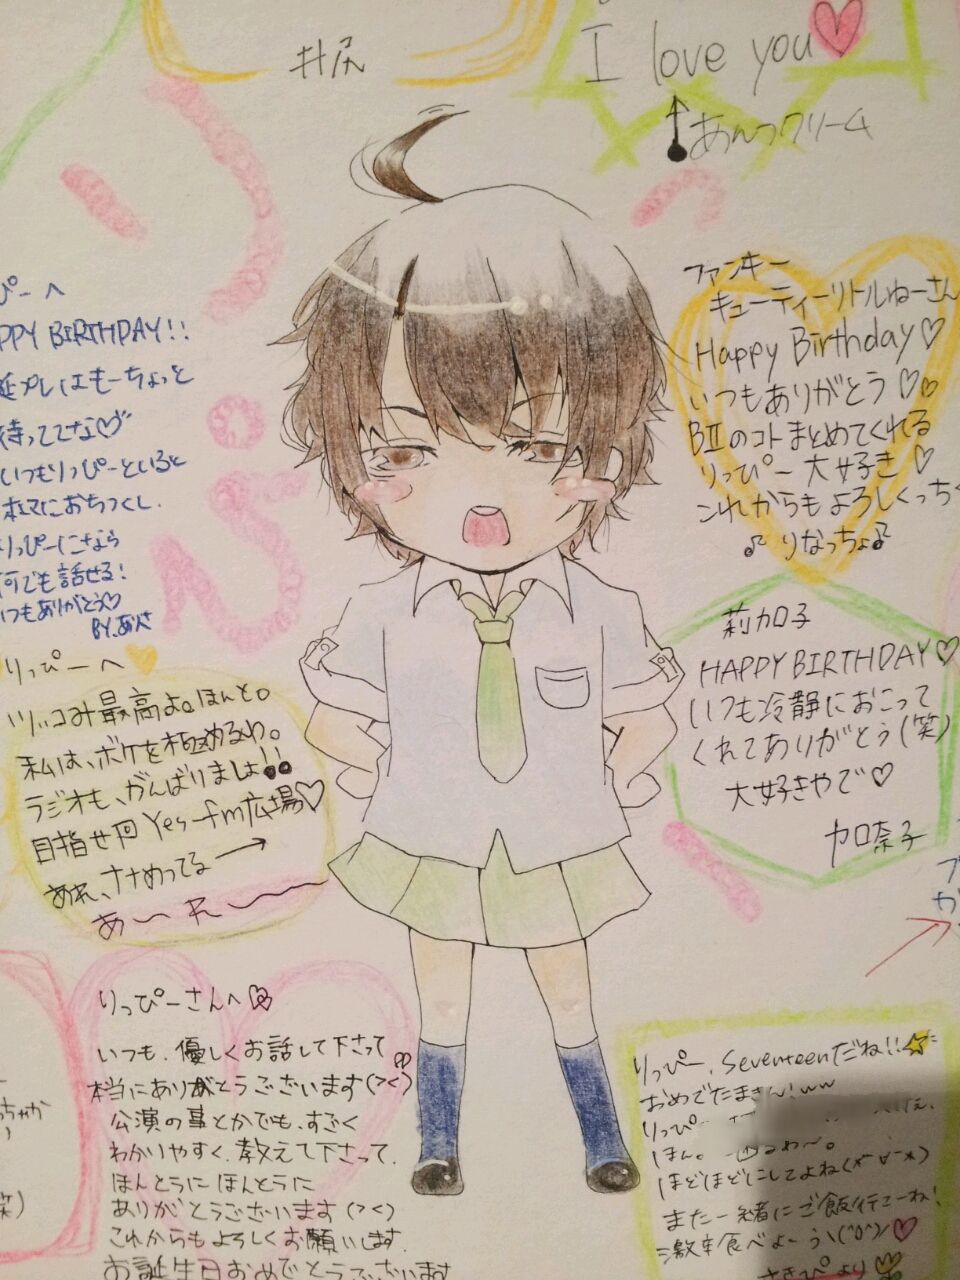 井尻
I love you
あんつクリーム
ぴーへ
PPY BIRTHDAY!!
誕プレはもーちょっと
待っててな♡
いつもりっぴーといると
ホンマにおちつくし、
りっぴーになら
何でも話せる!
いつもありがとう♡
BY.あんさ
ファンキー
キューティーリトルねーさん
Happy Birthday♡
いつもありがとう♡♡
BⅡのコトまとめてくれる
りっぴー大好き♡
これからもよろしくっち
♪りなっちょ♪
莉加子
HAPPY BIRTHDAY♡
いつも冷静におこって
くれてありがとう(笑)
大好きやで♡
加奈子
りっぴーへ
ツッコみ最高よ。ほんと。
私は、ボケを極めるわ。
ラジオも、がんばりましょ!!
目指せ Yes-fm広場♡
あれ、ななめってる→
あ〜れ〜
りっぴーさんへ
いつも、優しくお話して下さって
本当にありがとうございます(>く)
公演の事とかでも、すごく
わかりやすく、教えて下さって、
ほんとうにほんとうに
ありがとうございます(>く)
これからもよろしくお願いします。
お誕生日おめでとうございます
りっぴー、Seventeenだね!!
おめでたまきん!ww
りっぴー
ほん。
ほどほどにしてよね
また一緒にご飯行こーね!
激辛食べよー
さきぴより♡
りっぴ
笑)